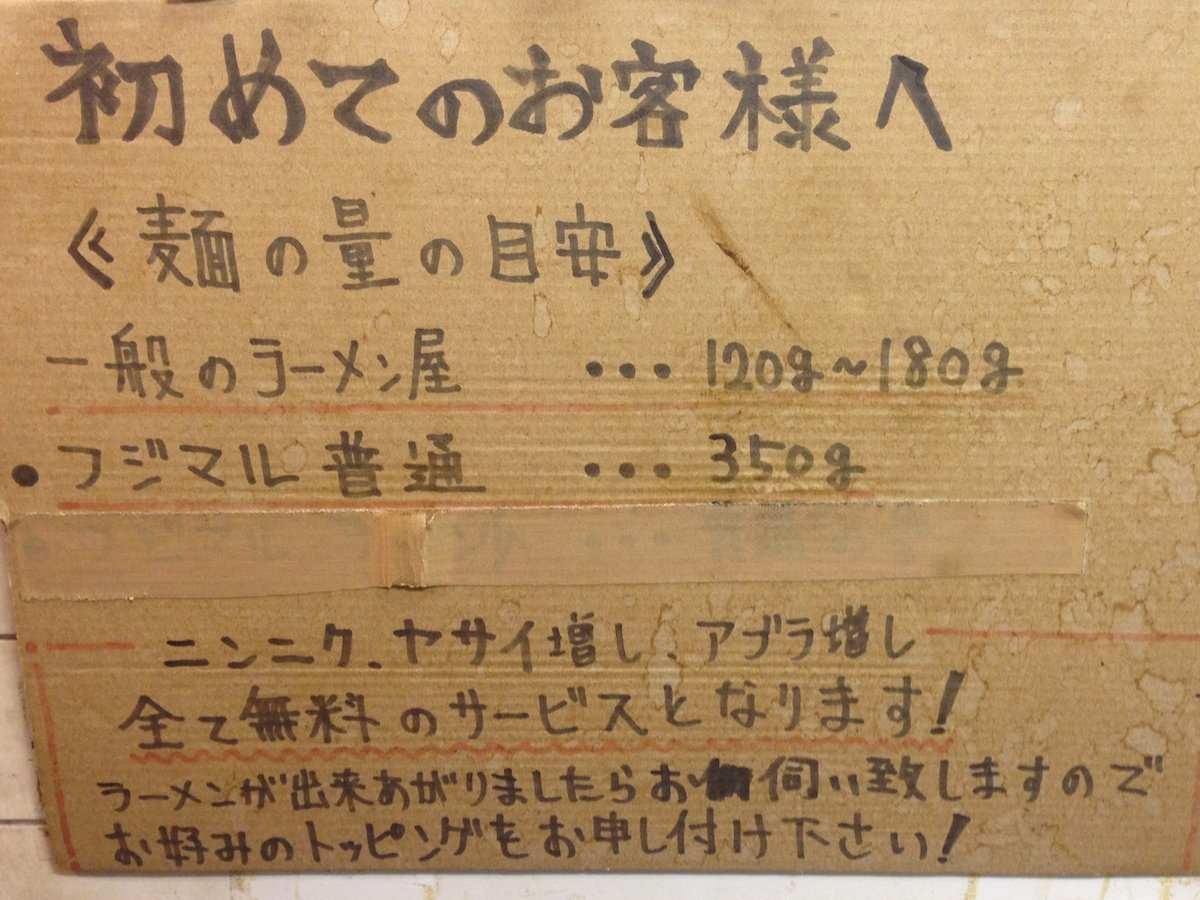 初めてのお客様へ
《麺の量の目安》
一般のラーメン屋 ・・・ 120g~180g
●フジマル 普通 ・・・ 350g
ニンニク、ヤサイ増し、アブラ増し
全て無料のサービスとなります!
ラーメンが出来あがりましたらお伺い致しますので
お好みのトッピングをお申し付け下さい!